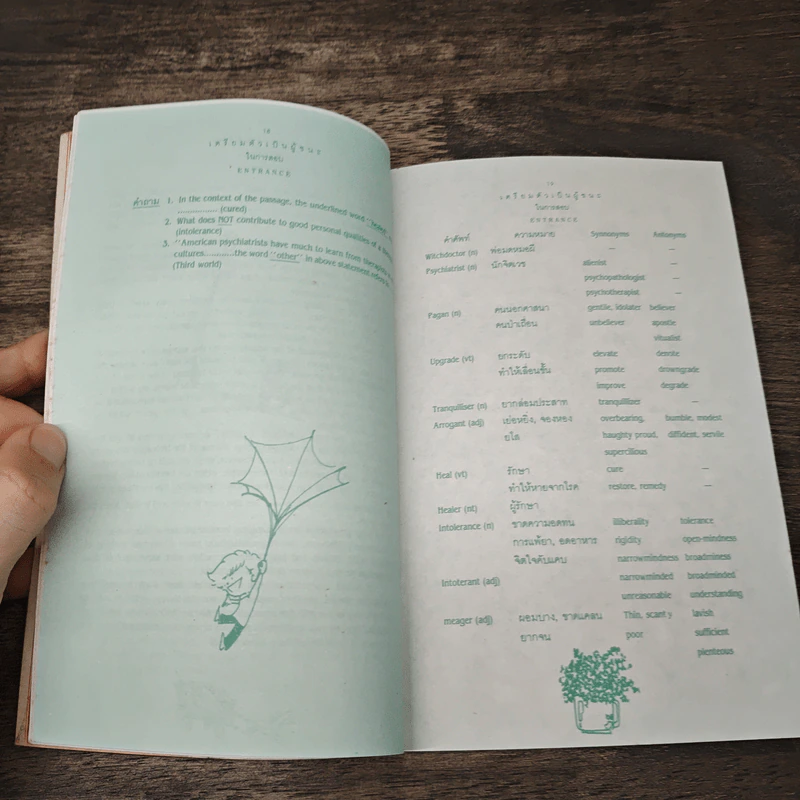 เตรียมตัวเป็นผู้ชนะ
ในการสอบ
ENTRANCE
คำถาม 1. In the context of the passage, the underlined word "healed"
.............. (cured)
2. What does NOT contribute to good personal qualities of a
(intolerance)
3. "American psychiatrists have much to learn from therapists
cultures...........the word "other" in above statement
(Third world)
19
เตรียมตัวเป็นผู้ชนะ
ในการสอบ
ENTRANCE
คำศัพท์ ความหมาย Synnonyms Antonyms
Witchdoctor (n) พ่อมดหมอผี — —
Psychiatrist (n) นักจิตเวช alienist —
psychopathologist —
psychotherapist —
Pagan (n) คนนอกศาสนา gentile, idolater believer
คนป่าเถื่อน unbeliever apostle
vitualist
Upgrade (vt) ยกระดับ elevate denote
ทำให้เลื่อนชั้น promote drowngrade
improve degrade
Tranquiliser (n) ยากล่อมประสาท tranquillizer —
Arrogant (adj) เย่อหยิ่ง, จองหอง overbearing, humble, modest
ยโส haughty proud, diffident, servile
supercilious
Heal (vt) รักษา cure —
ทำให้หายจากโรค restore, remedy —
Healer (nt) ผู้รักษา
Intolerance (n) ขาดความอดทน illiberality tolerance
การแพ้ยา, อดอาหาร rigidity open-mindness
จิตใจคับแคบ narrowmindness broadminess
Intoterant (adj) narrowminded broadminded
unreasonable understanding
meager (adj) ผอมบาง, ขาดแคลน Thin, scant y lavish
ยากจน poor sufficient
pienteous